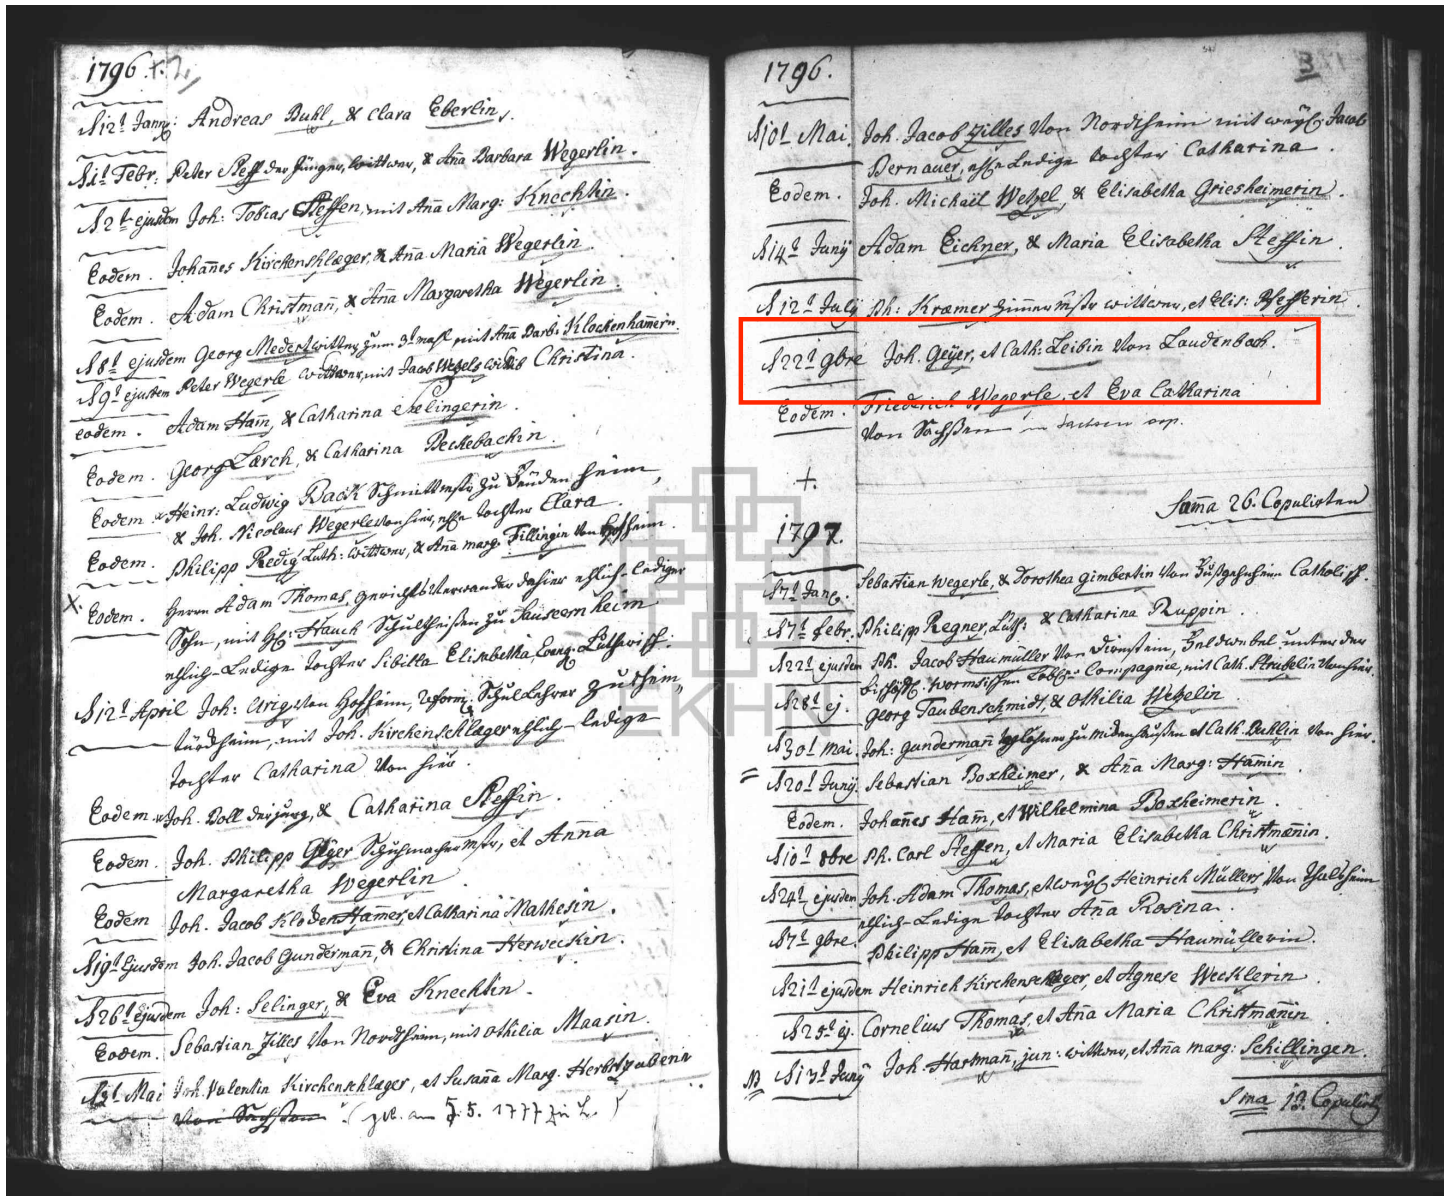 1796.
d 12t Jann: Andreas Buhl, & Clara Eberlin.
d 1t Febr: Peter Steff der Jünger, wittwer, & Aña Barbara Wegerlin.
d 2t ejusdem Joh: Tobias Steffen, mit Aña Marg: Knechtin.
Eodem. Johañes Kirchenschlæger, & Aña Maria Wegerlin.
Eodem. Adam Christmañ, & Aña Margaretha Wegerlin.
d 8t ejusdem Georg Medert wittwer, zum 3t mahl mit Aña Barb: Klockenhamern.
d 9t ejusdem Peter Wegerle wittwer, mit Jacob Wetzels wittib Christina.
eodem. Adam Ham̃, & Catharina Selingerin.
Eodem. Georg Lærch, & Catharina Beckebachin.
Eodem. Heinr: Ludwig Back Schmittmstr zu heim,
& Joh. Nicolaus Wegerle von hier, ehl. tochter Clara.
Eodem. Philipp Redig Luth: wittwer, & Aña marg: Fillingin von Hofheim.
x. Eodem. Herrn Adam Thomas, Gerichts Verwander dahier ehlich-lediger
Sohn, mit H: Hauch Schultheißen zu
ehlich-Ledige tochter Sibilla Elisabetha, Evang: Lutherisch.
d 12t April Joh: Urig von Hofheim, reform: Schul Lehrer zu Rhein,,
türckheim, mit Joh. Kirchenschläger ehlich-ledige
tochter Catharina von hier.
Eodem Joh. Boll der jung, & Catharina Steffin.
Eodem. Joh. Philipp Geyer Schuhmachermstr, et Anna
Margaretha Wegerlin
Eodem Joh. Jacob Klockenhamer, et Catharina Mathesin.
d 19t Ejusdem Joh. Jacob Gundermañ, & Christina Herweckin.
d 26t Ejusdem Joh: Selinger, & Eva Knechtin.
Eodem. Sebastian Zilles von Nordheim, mit Othilia Maasin.
d 3t Mai Joh. Valentin Kirchenschlæger, et Susaña Marg. Herbstgubenin
von Sachsen (geb. am 5. 5. 1777 zu L.)
1796.
3
d 10t Mai. Joh. Jacob Zilles von Nordheim mit weyl: Jacob
Bernauer, ehl. Ledige tochter Catharina.
Eodem. Joh. Michaël Wetzel, & Elisabetha Griesheimerin.
d 14t Junÿ Adam Eickner, & Maria Elisabetha Steffin.
d 12t July Ph: Kræmer Zimmer Mstr wittwer, et Elis: Pfefferin.
d 22t 9bre Joh. Geÿer, et Cath: Leibin von Laudenbach.
Eodem. Friederich Wegerle, et Eva Catharina
von Sachßen
+.
Sama 26. Copulirten
1797.
d 7t Jan. Sebastian Wegerle, & Dorothea Gimbertin von Catholisch.
d 7t febr. Philipp Regner, Luth: & Catharina Ruppin.
d 22t ejusdem Ph. Jacob Haumüller von Dirmstein, Feldwebel unter der
bischöfl: wormsischen Löbl: Compagnie, mit Cath. Strubelin von hier.
d 28t ej. Georg Taubenschmidt, & Othilia Wetzelin
d 30t Mai. Joh: Gundermañ et Cath. Buhlin von hier.
d 20t Junÿ. Sebastian Boxheimer, & Aña Marg: Hamin
Eodem. Johañes Ham̃, et Wilhelmina Boxheimerin.
d 10t 8bre Ph. Carl Steffen, et Maria Elisabetha Christmæñin.
d 24t ejusdem Joh. Adam Thomas, et weyl Heinrich Müllers von
ehlich-Ledige tochter Aña Rosina.
d 7t 9bre. Philipp Ham̃, et Elisabetha Haumüllerin.
d 21t ejusdem Heinrich Kirchenschlæger, et Agnese Wecklerin
d 25t ej. Cornelius Thomas, et Aña Maria Christmæñin
NB d 13t Junÿ Joh. Hartmañ, jun: wittwer, et Aña marg: Schillingen.
Sma 13. Copulirte
EKHN